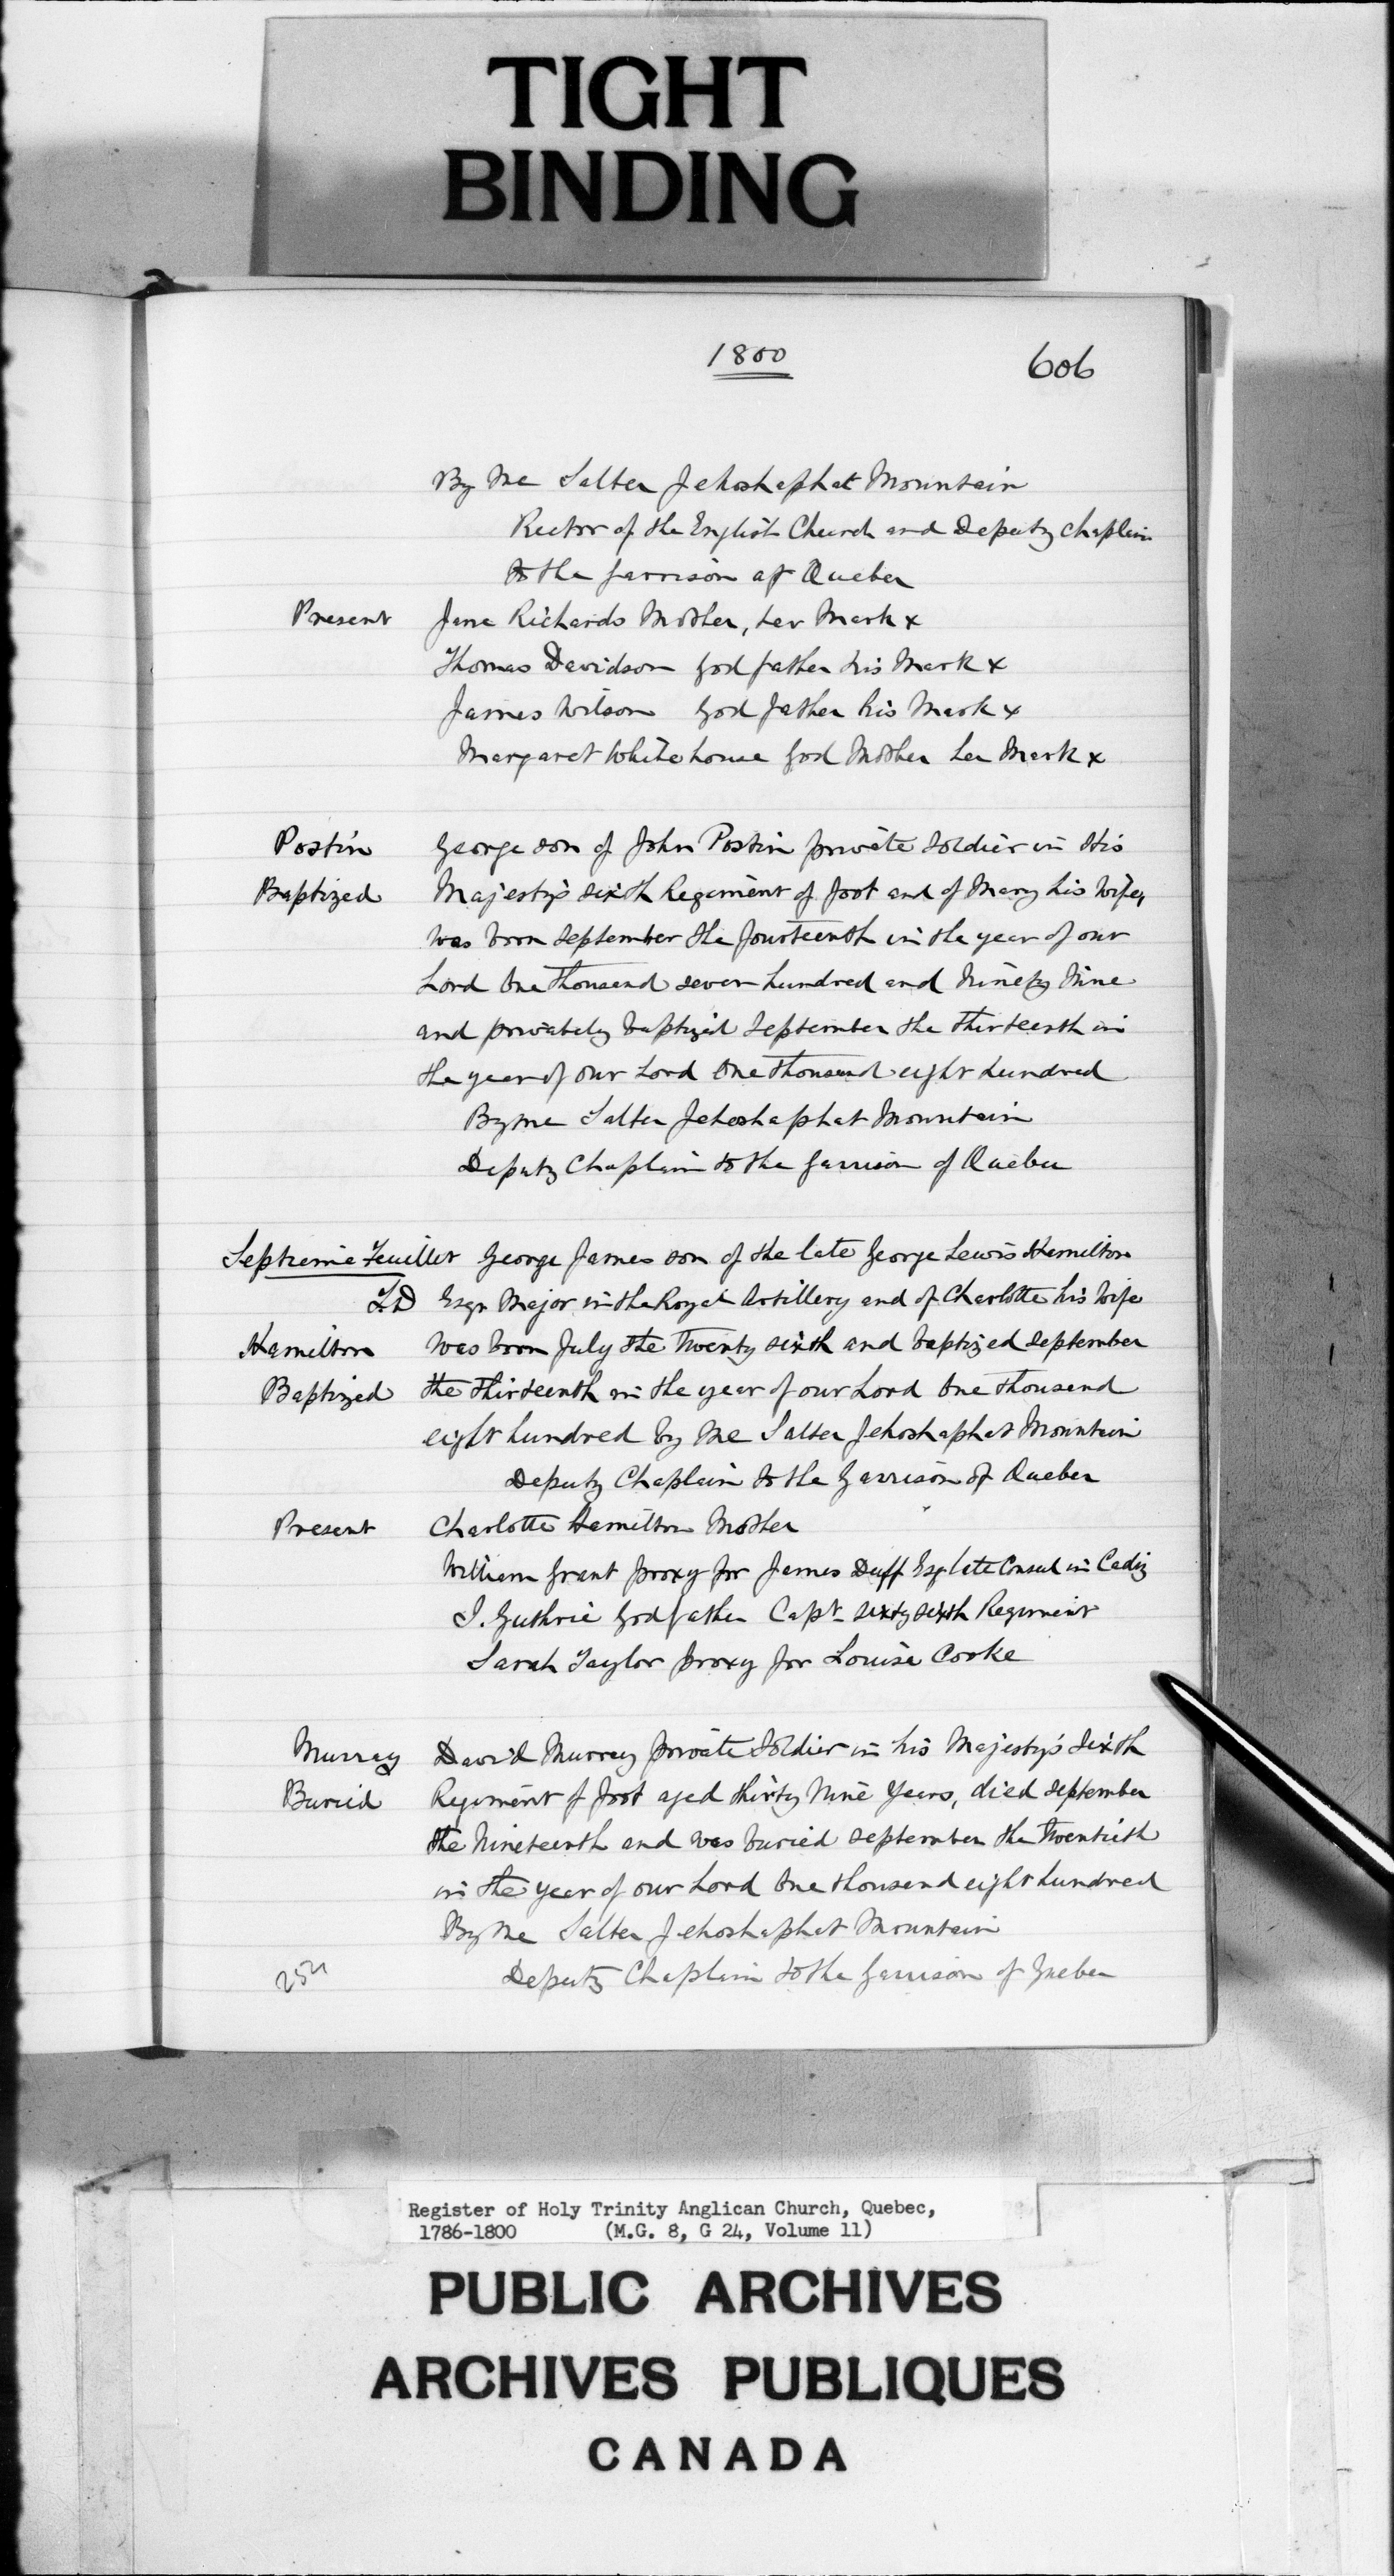 TIGHT
BINDING
1800
606
By Me Salter Jehoshaphat Mountain
Rector of the English Church and Deputy Chaplain
to the Garrison of Quebec
Present Jane Richards Mother, her Mark x
Thomas Davidson God father his Mark x
James Wilson God father his Mark x
Margaret Whitehouse God Mother her Mark x
Postin George son of John Postin private soldier in His
Baptized Majesty's sixth Regiment of foot and of Mary his Wife,
was born September the fourteenth in the year of our
Lord One thousand seven hundred and Ninety Nine
and privately baptized September the thirteenth in
the year of our Lord One thousand eight hundred
By me Salter Jehoshaphat Mountain
Deputy Chaplain to the Garrison of Quebec
Septieme Feuillet George James son of the late George Lewis Hamilton
Esqr Major in the Royal Artillery and of Charlotte his Wife
Hamilton was born July the Twenty sixth and baptized September
Baptized the thirteenth in the year of our Lord One thousand
eight hundred by Me Salter Jehoshaphat Mountain
Deputy Chaplain to the Garrison of Quebec
Present Charlotte Hamilton Mother
William Grant proxy for James Duff Esq late Consul in Cadiz
J. Guthrie Godfather Capt sixty sixth Regiment
Sarah Taylor proxy for Louisa Cooke
Murray David Murray private Soldier in his Majesty's Sixth
Buried Regiment of foot aged thirty Nine Years, died September
the Nineteenth and was buried September the Twentieth
in the year of our Lord One thousand eight hundred
By Me Salter Jehoshaphat Mountain
Deputy Chaplain to the Garrison of Quebec
Register of Holy Trinity Anglican Church, Quebec,
1786-1800 (M.G. 8, G 24, Volume 11)
PUBLIC ARCHIVES
ARCHIVES PUBLIQUES
CANADA